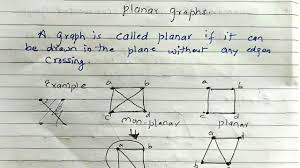 planar graphs.
A graph is called planar if it can
be drawn in the plane without any edges
Crossing.
Example
a b a b
c d c d
non-planar planar
a b a b